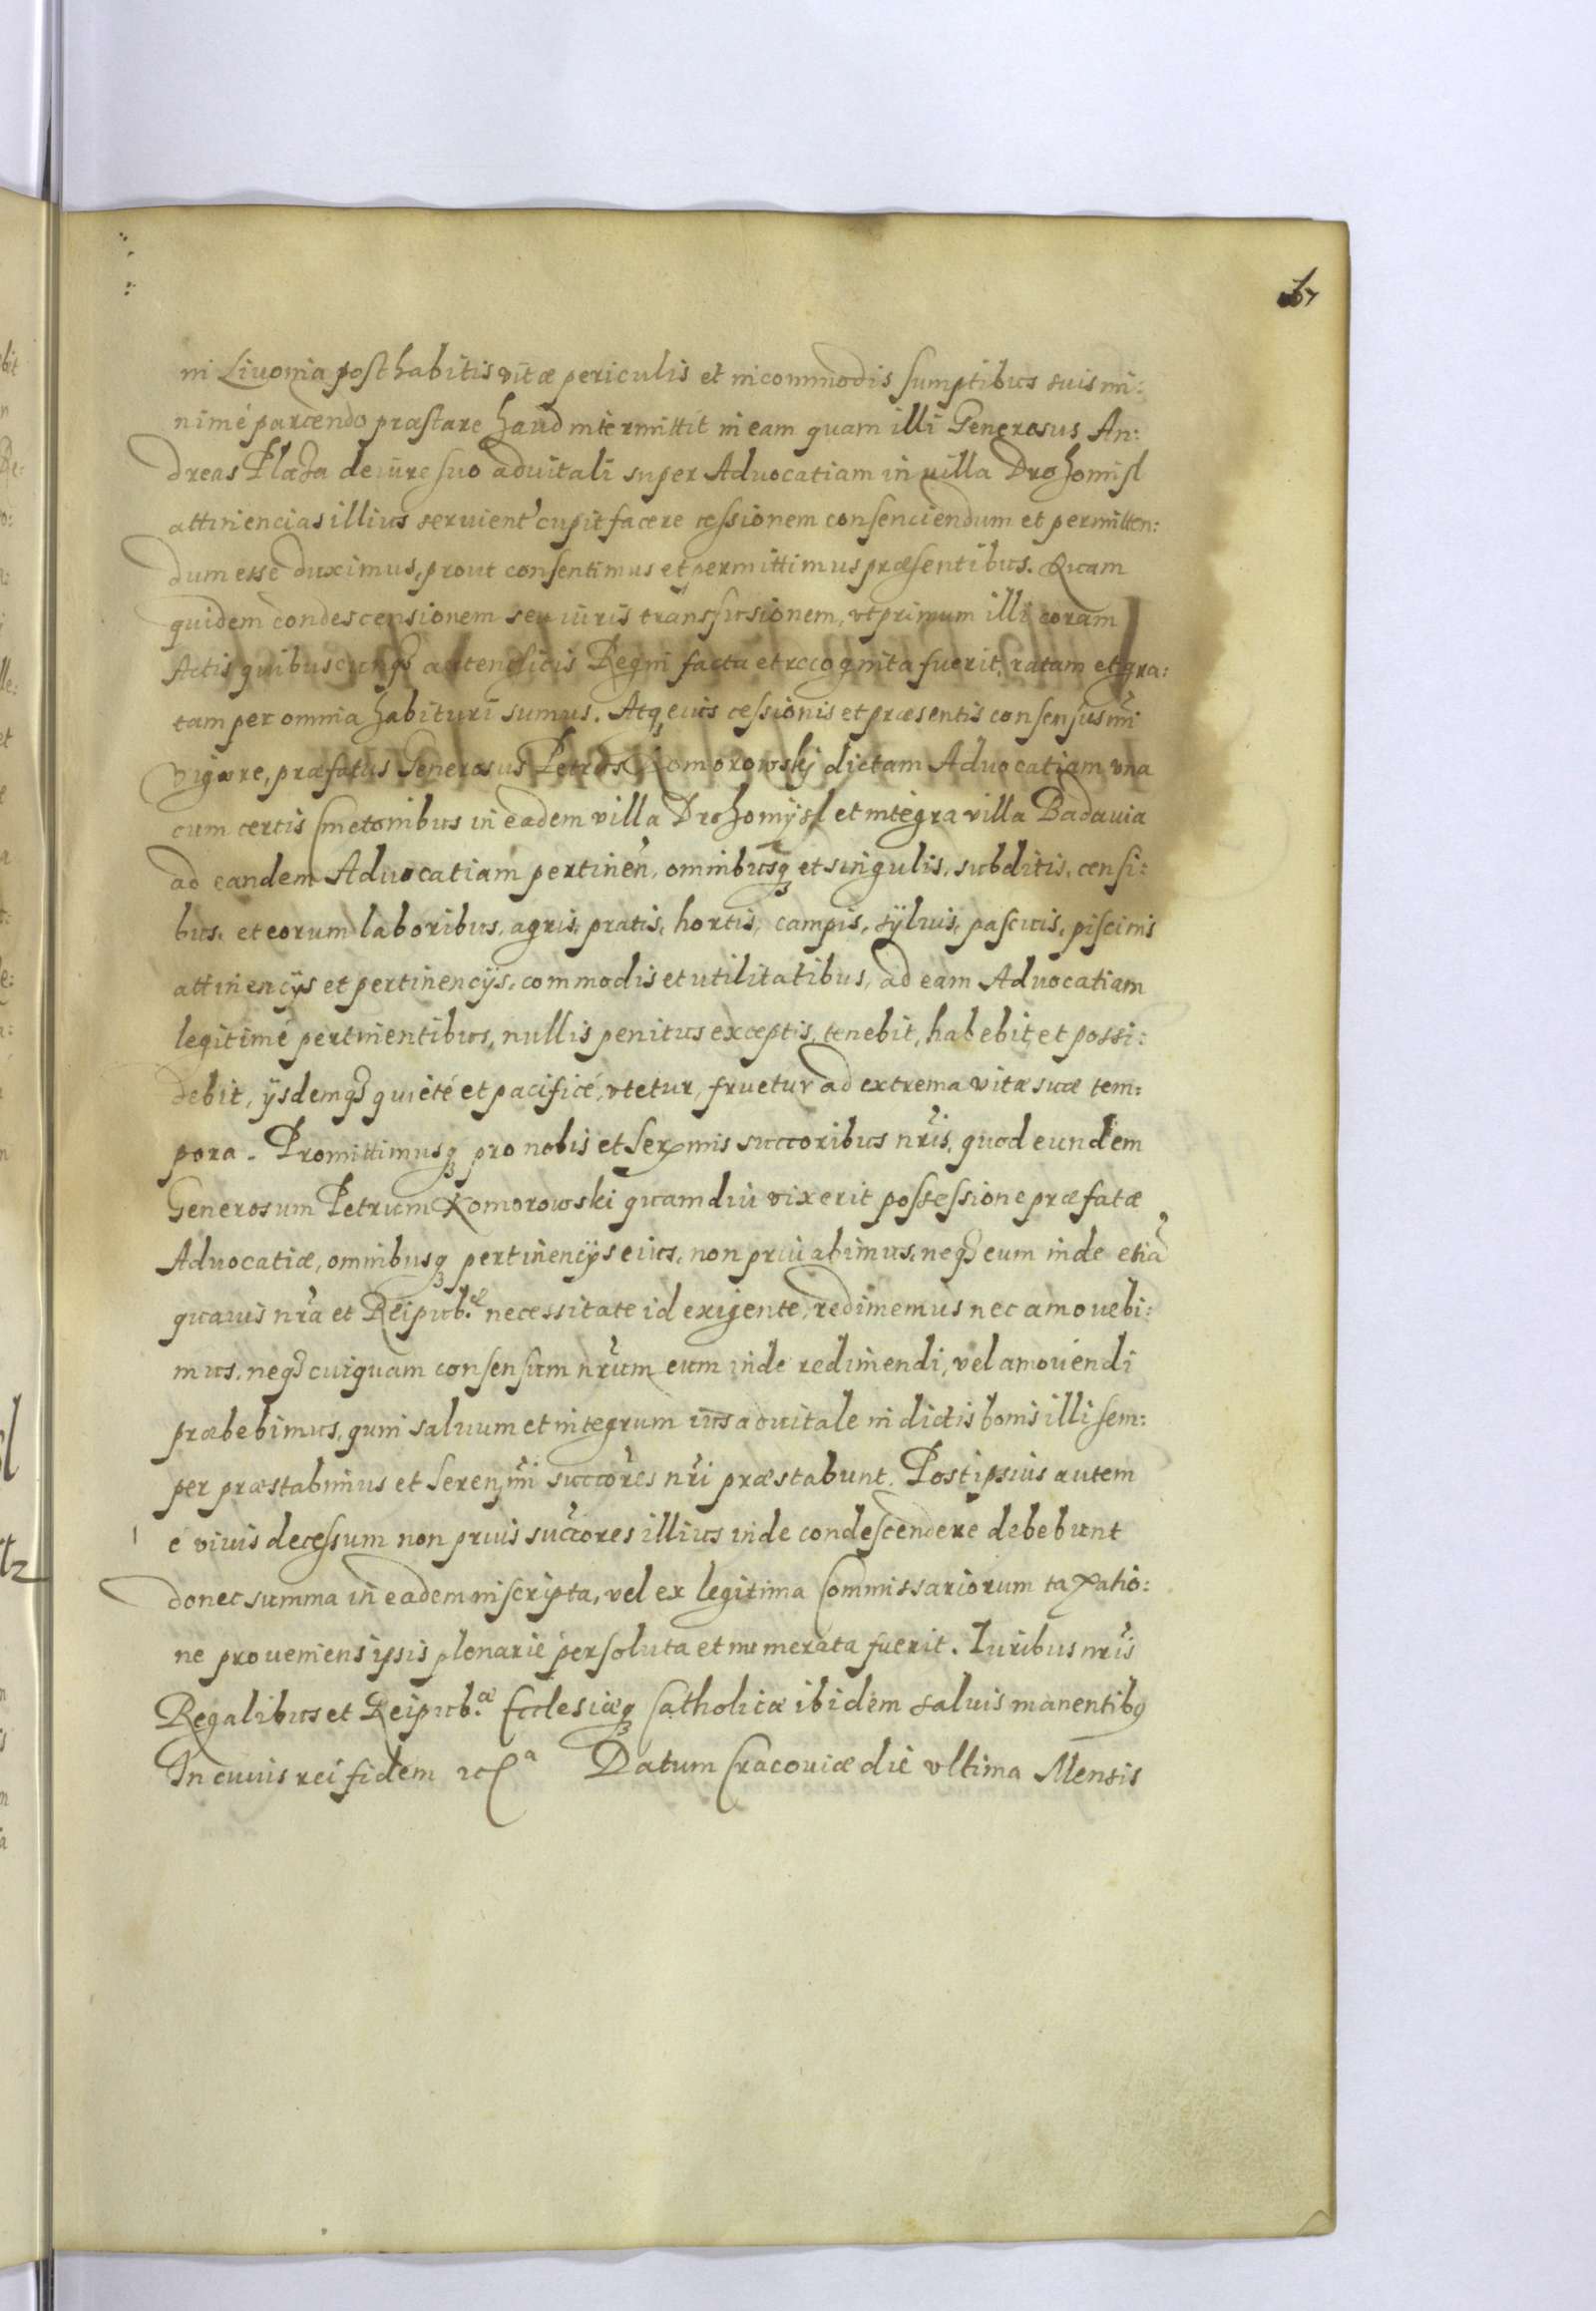 in Livonia posthabitis vitæ periculis et incommodis sumptibus suis mi:
nimé parcendo præstare haud intermittit in eam quam illi Generosus An:
dreas Placza de iure suo advitali super Advocatiam in villa Drohomisl
attinencias illius servient' cupit facere cessionem consenciendum et permitten:
dum esse duximus, prout consentimus et permittimus præsentibus. Quam
quidem condescensionem seu iuris transfusionem, vt primum illi coram
Actis quibuscunq3 autenticis Regni facta et recognita fuerit, ratam et gra:
tam per omnia habituri sumus. Atq3 eius cessionis et præsentis consensus nri
vigore, præfatus Generosus Petrus Komorowskj dictam Advocatiam vna
cum certis Cmetonibus in eadem villa Drohomÿsl et integra villa Badavia
ad eandem Advocatiam pertinen, omnibusq3 et singulis, subditis, censi:
bus, et eorum laboribus, agris, pratis, hortis, campis, sÿlvis, pascuis, piscinis
attinencÿs et pertinencÿs, commodis et utilitatibus, ad eam Advocatiam
legitimé pertinentibus, nullis penitus exceptis, tenebit, habebit, et possi:
debit, ÿsdemq3 quieté et pacificé, vtetur, fruetur ad extrema vitæ suæ tem:
pora. Promittimusq3 pro nobis et Serenmis succoribus nris, quod eundem
Generosum Petrum Komorowski quamdiu vixerit possessione præfatæ
Advocatiæ, omnibusq3 pertinencÿs eius, non privabimus, neq3 eum inde etiā
quavis nra et Reipub.æ necessitate id exigente, redimemus nec amovebi:
mus, neq3 cuiquam consensum nrum eum inde redimendi, vel amovendi
præbebimus, quin salvum et integrum ius advitale in dictis bonis illi sem:
per præstabimus et Serenmi succores nri præstabunt. Post ipsius autem
é vivis decessum non prius succores illius inde condescendere debebunt
donec summa in eadem inscripta, vel ex legitima Commissariorum taxatio:
ne proveniens ipsis plenarié persoluta et numerata fuerit. Iuribus nris
Regalibus et Reipub.æ Ecclesiæq3 Catholicæ ibidem salvis manentib9
In cuius rei fidem etc.a Datum Cracoviæ die vltima Mensis